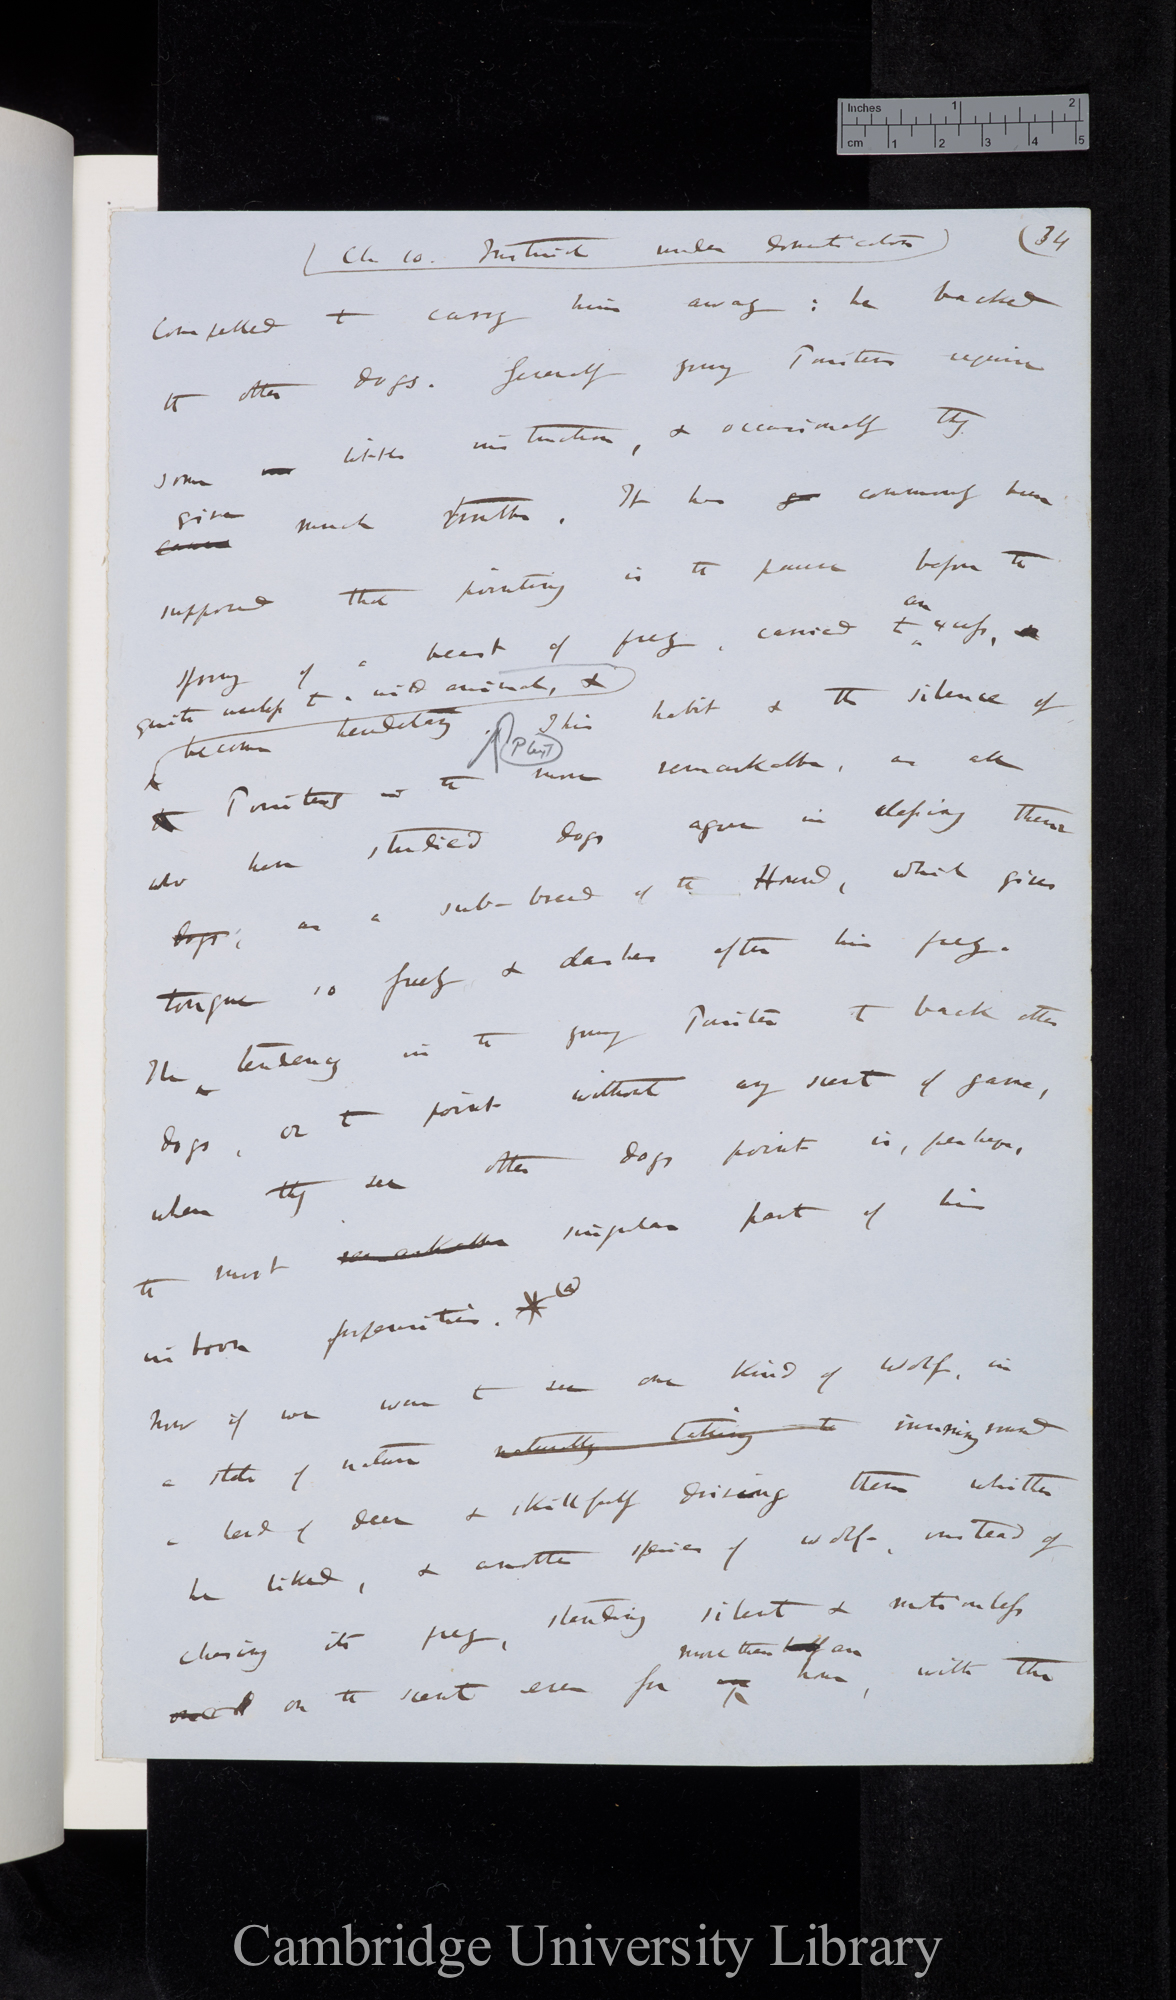 Inches 1 2
cm 1 2 3 4 5
(Ch 10. Instinct under domestication)
(34
compelled to carry him away; he backed
the other dogs. Generally young Pointers require
some little instruction, & occasionally they
give
cause much trouble. It has commonly been
supposed that pointing is the pause before the
an
spring of a beast of prey, carried to excess,
quite useless to a wild animal, &
become hereditary. This habit & the silence of
(P test)
Pointers is the more remarkable, as all
who have studied dogs agree in classing them
dogs, as a sub-breed of the Hound, which gives
tongue so freely & dashes after his prey.
The tendency in the young Pointer to back other
dogs, or to point without any scent of game,
when they see other dogs point is, perhaps,
the most remarkable singular part of his
inborn propensities. * (a)
Now if we were to see one kind of wolf, in
a state of nature naturally taking to running round
a herd of deer & skillfully driving them whither
he liked, & another species of wolf, instead of
chasing its prey, standing silent & motionless
more than half an
on the scent even for an hour, with the
Cambridge University Library